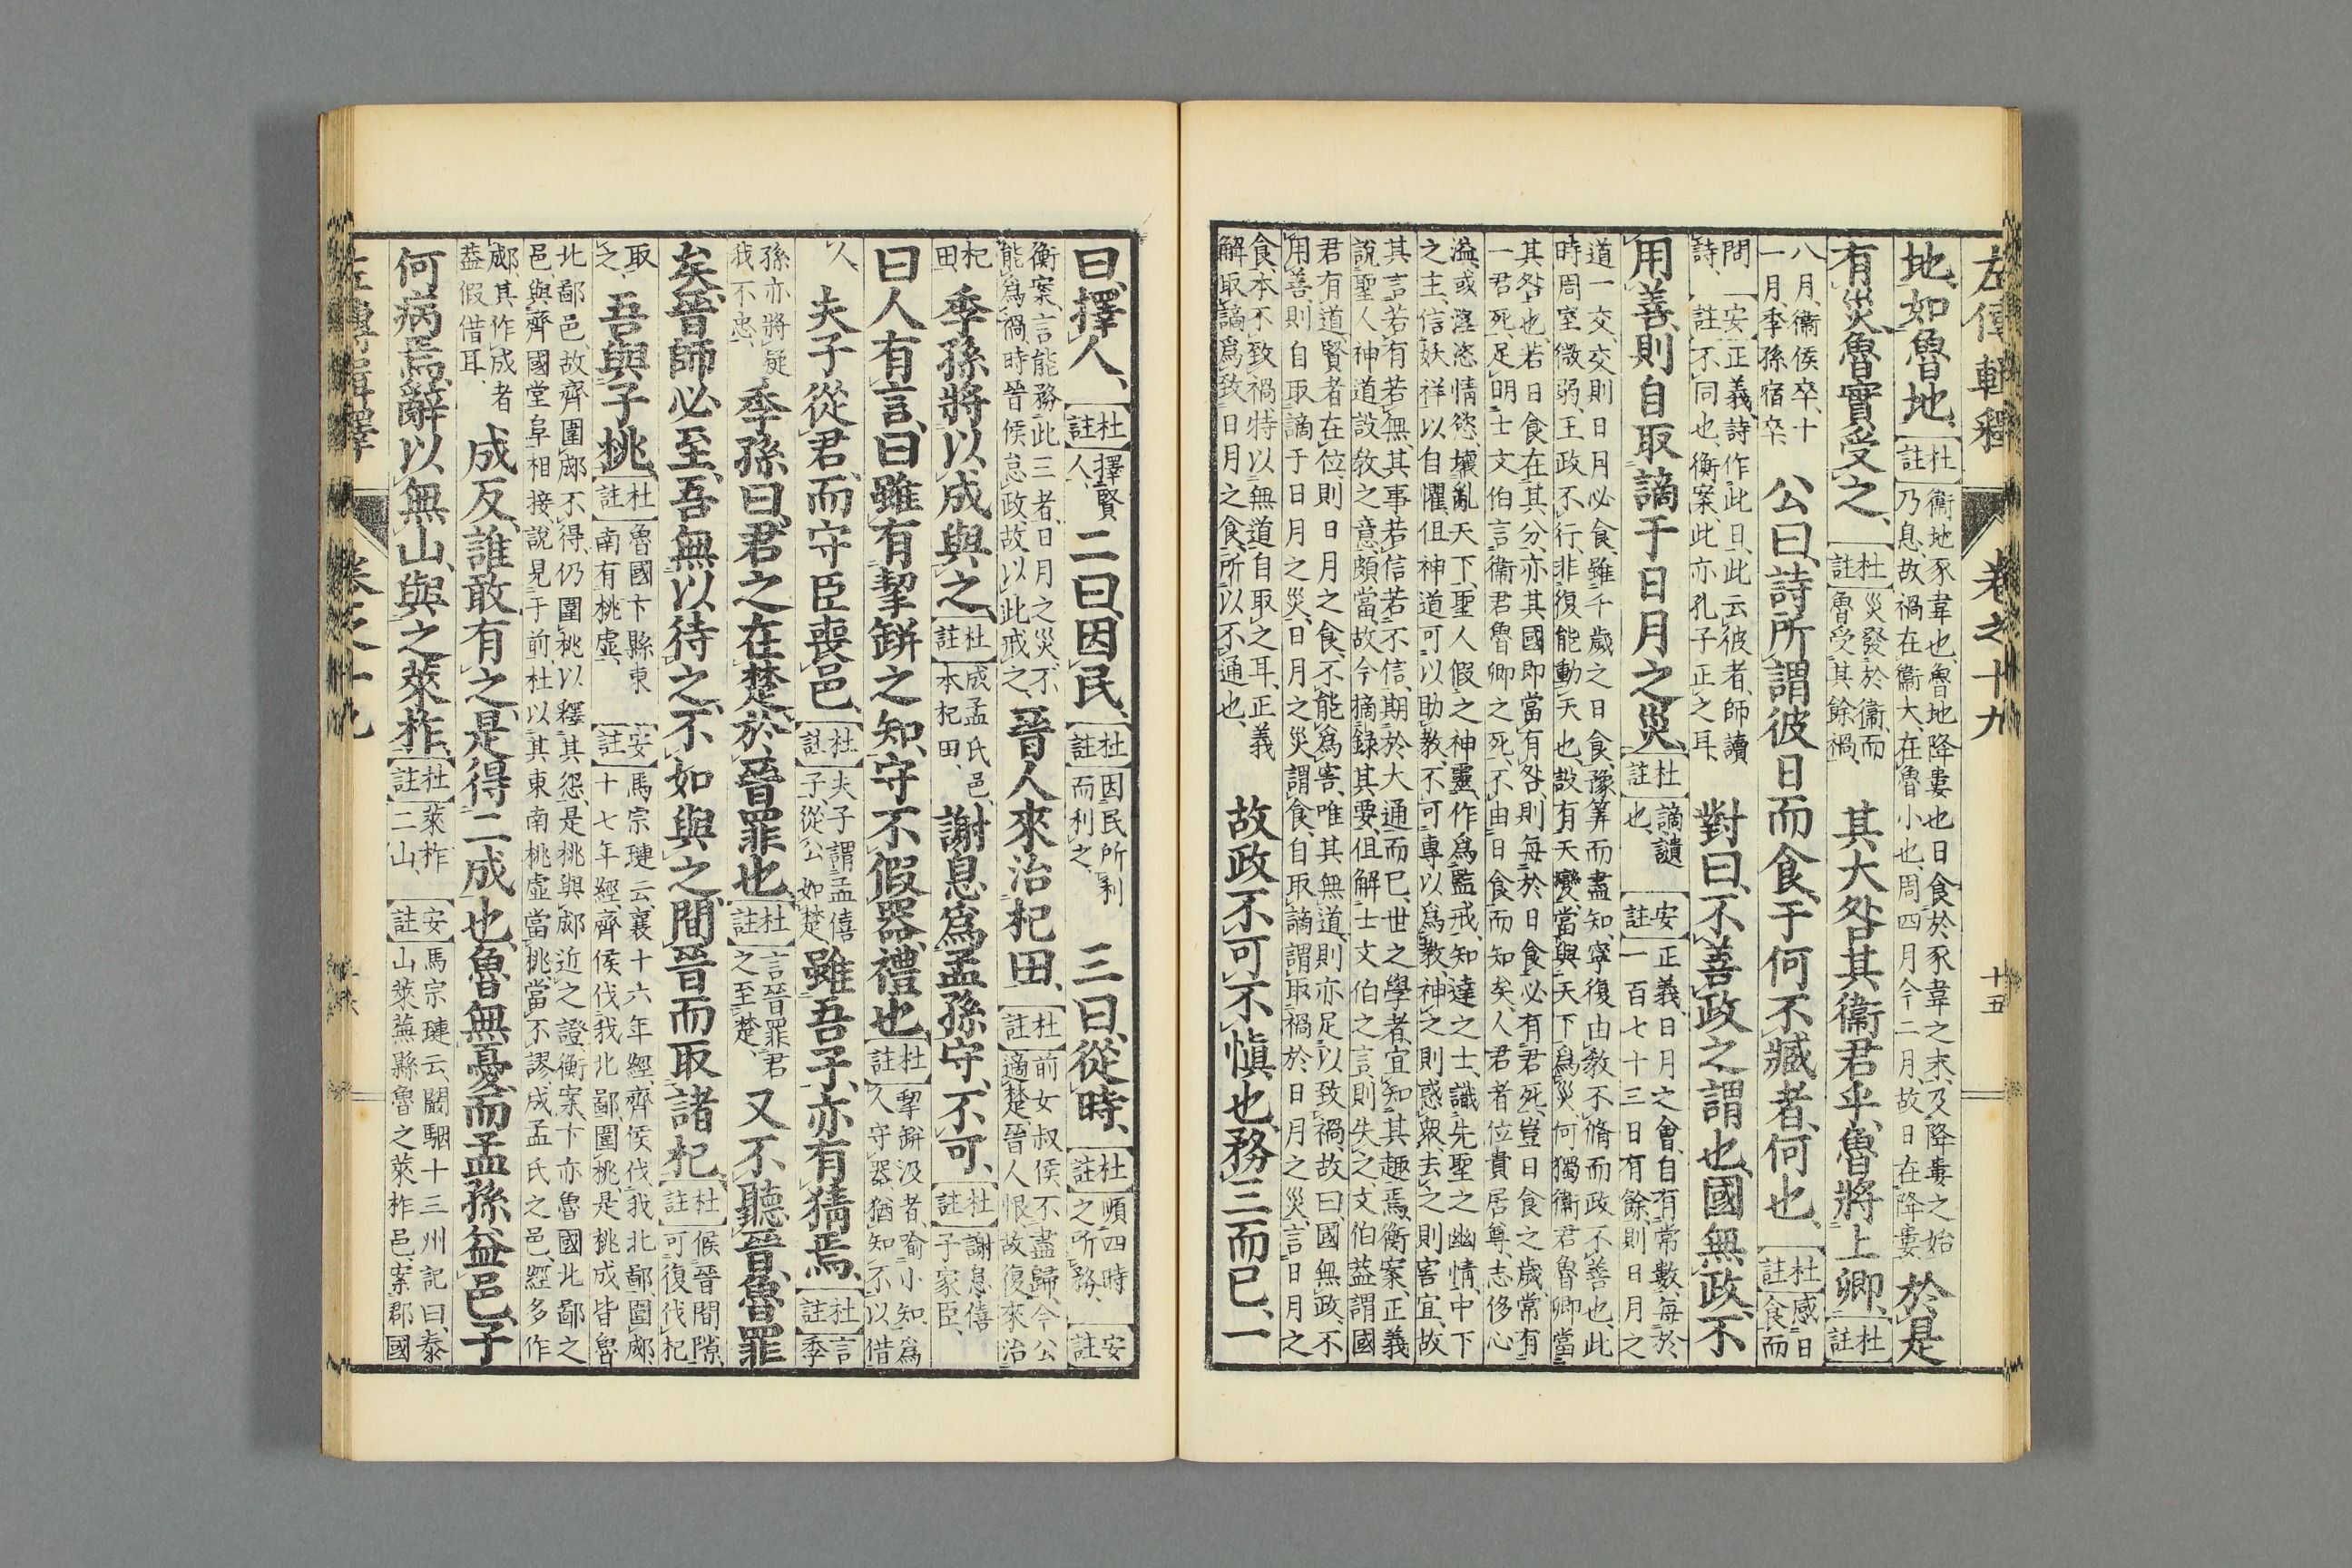 左傳輯釋　卷之十九　十五
地、如魯地、【杜註】衞地豕韋也、魯地降婁也、日食於豕韋之末、及降婁之始
乃息、故禍在衞大、在魯小也、周四月、今二月、故日在降婁、於是
有災、魯實受之、【杜註】災發於衞、而
魯受其餘禍、其大咎其衞君乎、魯將上卿、【杜註】
八月、衞侯卒、十
一月、季孫宿卒、公曰、詩所謂彼日而食、于何不臧者、何也、【杜註】感日
食而
問
詩、【安註】正義、詩作此日、此云彼者、師讀
不同也、衡案、此亦孔子正之耳、對曰、不善政之謂也、國無政、不
用善、則自取謫于日月之災、【杜註】謫、譴
也、【安註】正義、日月之會、自有常數、每於
一百七十三日有餘、則日月之
道一交、交則日月必食、雖千歲之日食、豫筭而盡知、寧復由教不脩而政不善也、此
時周室微弱、王政不行、非復能動天也、設有天變、當與天下爲災、何獨衞君魯卿當
其咎也、若日食在其分、亦其國即當有咎、則每於日食必有君死、豈日食之歲、常有
一君死、足明士文伯言衞君魯卿之死、不由日食而知矣、人君者、位貴居尊、志侈心
溢、或淫恣情慾、壞亂天下、聖人假之神靈、作爲監戒、知達之士、識先聖之幽情、中下
之主、信妖祥以自懼、但神道可以助教、不可專以爲教、神之則惑衆、去之則害宜、故
其言若有若無、其事若信若不信、期於大通而已、世之學者、宜知其趣焉、衡案、正義
說聖人神道設教之意、頗當、故今摘錄其要、但解士文伯之言、則失之、文伯葢謂國
君有道、賢者在位、則日月之食、不能爲害、唯其無道、則亦足以致禍、故曰國無政、不
用善、則自取謫于日月之災、日月之災謂食、自取謫謂取禍於日月之災、言日月之
食、本不致禍、特以無道自取之耳、正義
解取謫爲致日月之食、所以不通也、故政不可不愼也、務三而已、一
曰、擇人、【杜註】擇賢
人、二曰、因民、【杜註】因民所利
而利之、三曰、從時、【杜註】順四時
之所務、【安註】
衡案、言能務此三者、日月之災不
能爲禍、時晉侯怠政、故以此戒之、晉人來治杞田、【杜註】前女叔侯不盡歸、今公
適楚、晉人恨、故復來治
杞
田、季孫將以成與之、【杜註】成、孟氏邑、
本杞田、謝息爲孟孫守、不可、【杜註】謝息、僖
子家臣、
曰人有言、曰雖有挈缾之知、守不假器、禮也、【杜註】挈缾汲者、喻小知、爲
人守器、猶知不以借
人、夫子從君、而守臣喪邑、【杜註】夫子謂孟僖
子、從公如楚、雖吾子亦有猜焉、【杜註】言
季
孫亦將疑
我不忠、季孫曰、君之在楚、於晉罪也、【杜註】言晉罪君
之至楚、又不聽晉、魯罪
矣、晉師必至、吾無以待之、不如與之、閒晉而取諸杞、【杜註】候晉間隙、
可復伐杞
取
之、吾與子桃、【杜註】魯國卞縣東
南有桃虛、【安註】馬宗璉云、襄十六年經、齊侯伐我北鄙、圍郕、
十七年經、齊侯伐我北鄙、圍桃、是桃成皆魯
北鄙邑、故齊圍郕不得、仍圍桃以釋其怨、是桃與郕近之證、衡案、卞亦魯國北鄙之
邑、與齊國堂阜相接、說見于前、杜以其東南桃虛當桃、當不謬、成孟氏之邑、經多作
郕、其作成者
葢假借耳、成反、誰敢有之、是得二成也、魯無憂、而孟孫益邑、子
何病焉、辭以無山、與之萊柞、【杜註】萊柞
二山、【安註】馬宗璉云、闞駰十三州記曰、泰
山萊蕪縣魯之萊柞邑、案郡國